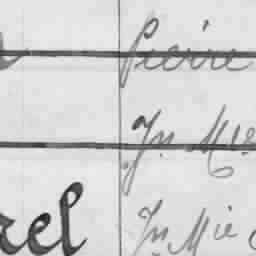 Pierre
Jn Mie
rel Jn Mie